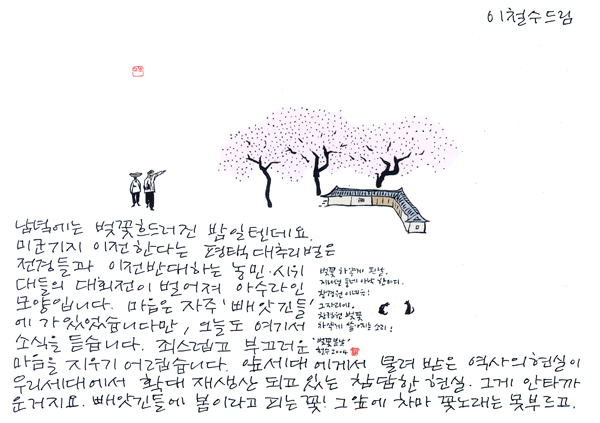 이철수드림
남녘에는 벚꽃흐드러진 밤일텐데요.
미군기지 이전한다는 평택대추리벌은
전경들과 이전반대하는 농민·시위
대들의 대회전이 벌어져 아수라인
모양입니다. 마음은 자주 '빼앗긴들'
에 가있었습니다만, 오늘도 여기서
소식을 듣습니다. 죄스럽고 부끄러운
마음을 지우기 어렵습니다. 앞세대에게서 물려 받은 역사의현실이
우리세대에서 확대 재생산 되고 있는 참담한 현실. 그게 안타까
운거지요. 빼앗긴들에 봄이라고 피는 꽃! 그앞에 차마 꽃노래는 못부르고.
벚꽃 하얗게 핀 날.
지나던 동네 아낙 한마디.
창경원 이네!
그 자리에.
창백한 벚꽃
하얗게 쏟아지는 소리!
'벚꽃 봄날'
철수 2004